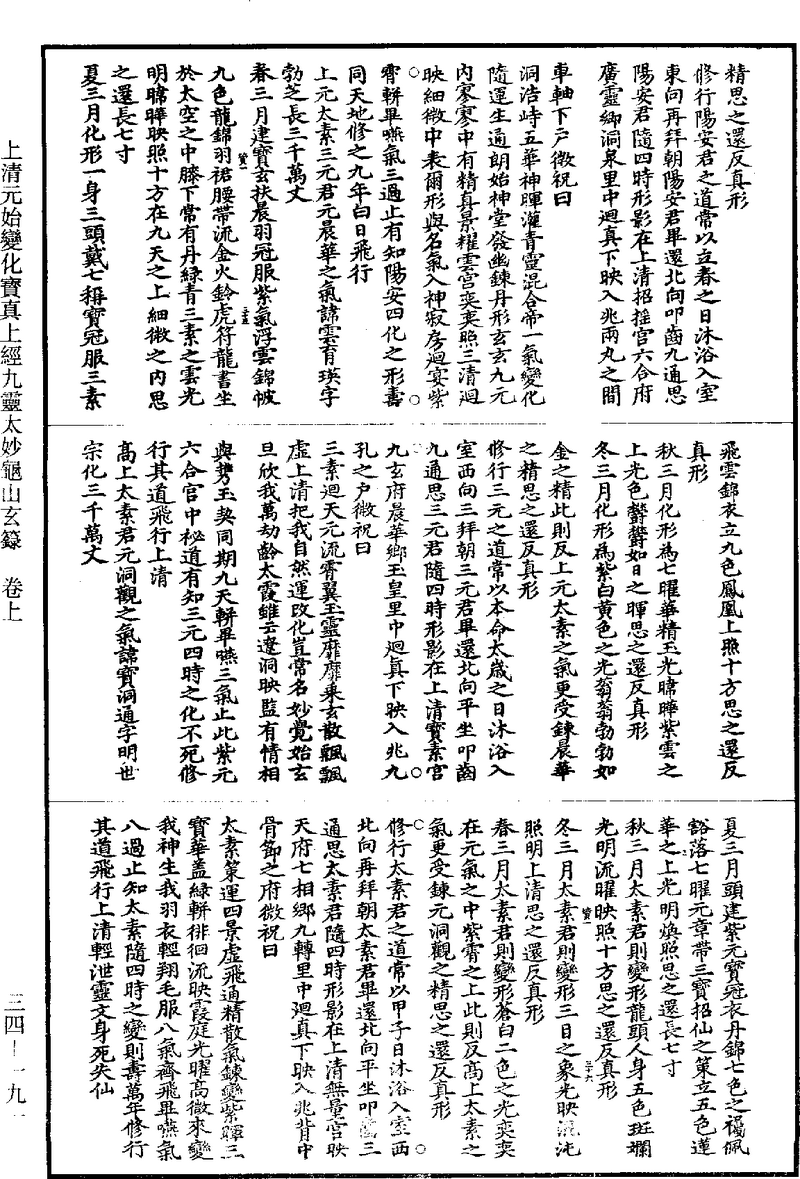 精思之還反真形
修行陽安君之道常以立春之日沐浴入室
東向再拜朝陽安君畢還北向叩齒九通思
陽安君隨四時形影在上清招搖宮六合府
廣靈鄉洞泉里中迴真下映入兆兩丸之間
車軸下戶微祝曰
洞浩峙五華神暉灌青靈混合帝一氣變化
隨運生通朗始神堂發幽鍊丹形玄玄九元
內寥寥中有精真景耀雲宮奕奕照三清迴
映細微中表爾形與名氣入神寂房迴宴紫
霄輧畢嚥氣三過止有知陽安四化之形壽
同天地修之九年白日飛行
上元太素三元君元晨華之氣諱雲育瑛字
勃芝長三千萬丈
春三月建寶玄扶晨羽冠服紫氣浮雲錦帔
九色龍錦羽裙腰帶流金火鈴虎符龍書坐
於太空之中膝下常有丹綠青三素之雲光
明暐曄映照十方在九天之上細微之內思
之還長七寸
夏三月化形一身三頭戴七稱寶冠服三素
飛雲錦衣立九色鳳凰上照十方思之還反
真形
秋三月化形為七曜華精玉光暐曄紫雲之
上光色鬱鬱如日之暉思之還反真形
冬三月化形為紫白黃色之光蓊蓊勃勃如
金之精此則反上元太素之氣更受鍊晨華
之精思之還反真形
修行三元之道常以本命太歲之日沐浴入
室西向三拜朝三元君畢還北向平坐叩齒
九通思三元君隨四時形影在上清寶素宮
九玄府晨華鄉玉皇里中迴真下映入兆九
孔之戶微祝曰
三素迴天元流霄翼玉靈靡靡乘玄散飄飄
虛上清把我自然運改化豈常名妙覺始玄
旦欣我萬劫齡太霞雖云遼洞映監有情相
與携玉契同期九天輧畢嚥三氣止此紫元
六合宮中祕道有知三元四時之化不死修
行其道飛行上清
高上太素君元洞觀之氣諱寶洞通字明世
宗化三千萬丈
夏三月頭建紫元寶冠衣丹錦七色之褐佩
豁落七曜元章帶三寶招仙之策立五色蓮
華之上光明煥照思之還長七寸
秋三月太素君則變形龍頭人身五色斑斕
光明流曜映照十方思之還反真形
冬三月太素君則變形三日之象光映混沌
照明上清思之還反真形
春三月太素君則變形蒼白二色之光奕奕
在元氣之中紫霄之上此則反高上太素之
氣更受鍊元洞觀之精思之還反真形
修行太素君之道常以甲子日沐浴入室西
北向再拜朝太素君畢還北向平坐叩齒三
通思太素君隨四時形影在上清無量宮映
天府七相鄉九轉里中迴真下映入兆背中
骨節之府微祝曰
太素策運四景虛飛通精散氣鍊變紫暉三
寶華蓋綠輧徘徊流映霞庭光曜高微來變
我神生我羽衣輕翔毛服八氣齊飛畢嚥氣
八過止知太素隨四時之變則壽萬年修行
其道飛行上清輕泄靈文身死失仙
上清元始變化寶真上經九靈太妙龜山玄籙 卷上
三四—一九一